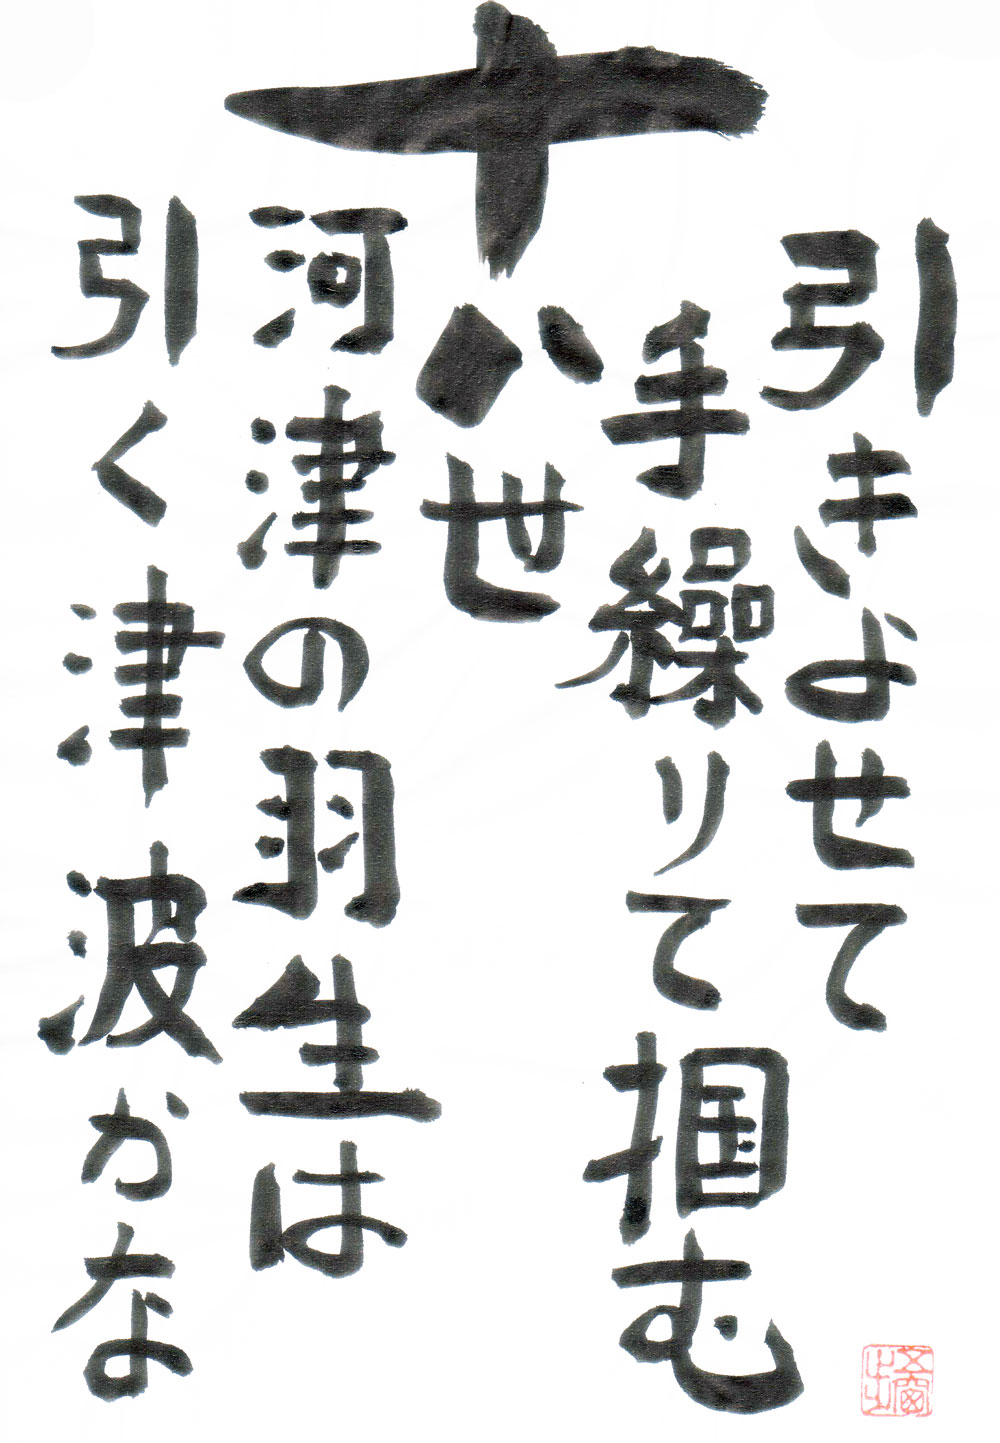 引きよせて
手繰りて掴む
十八世
河津の羽生は
引く津波かな